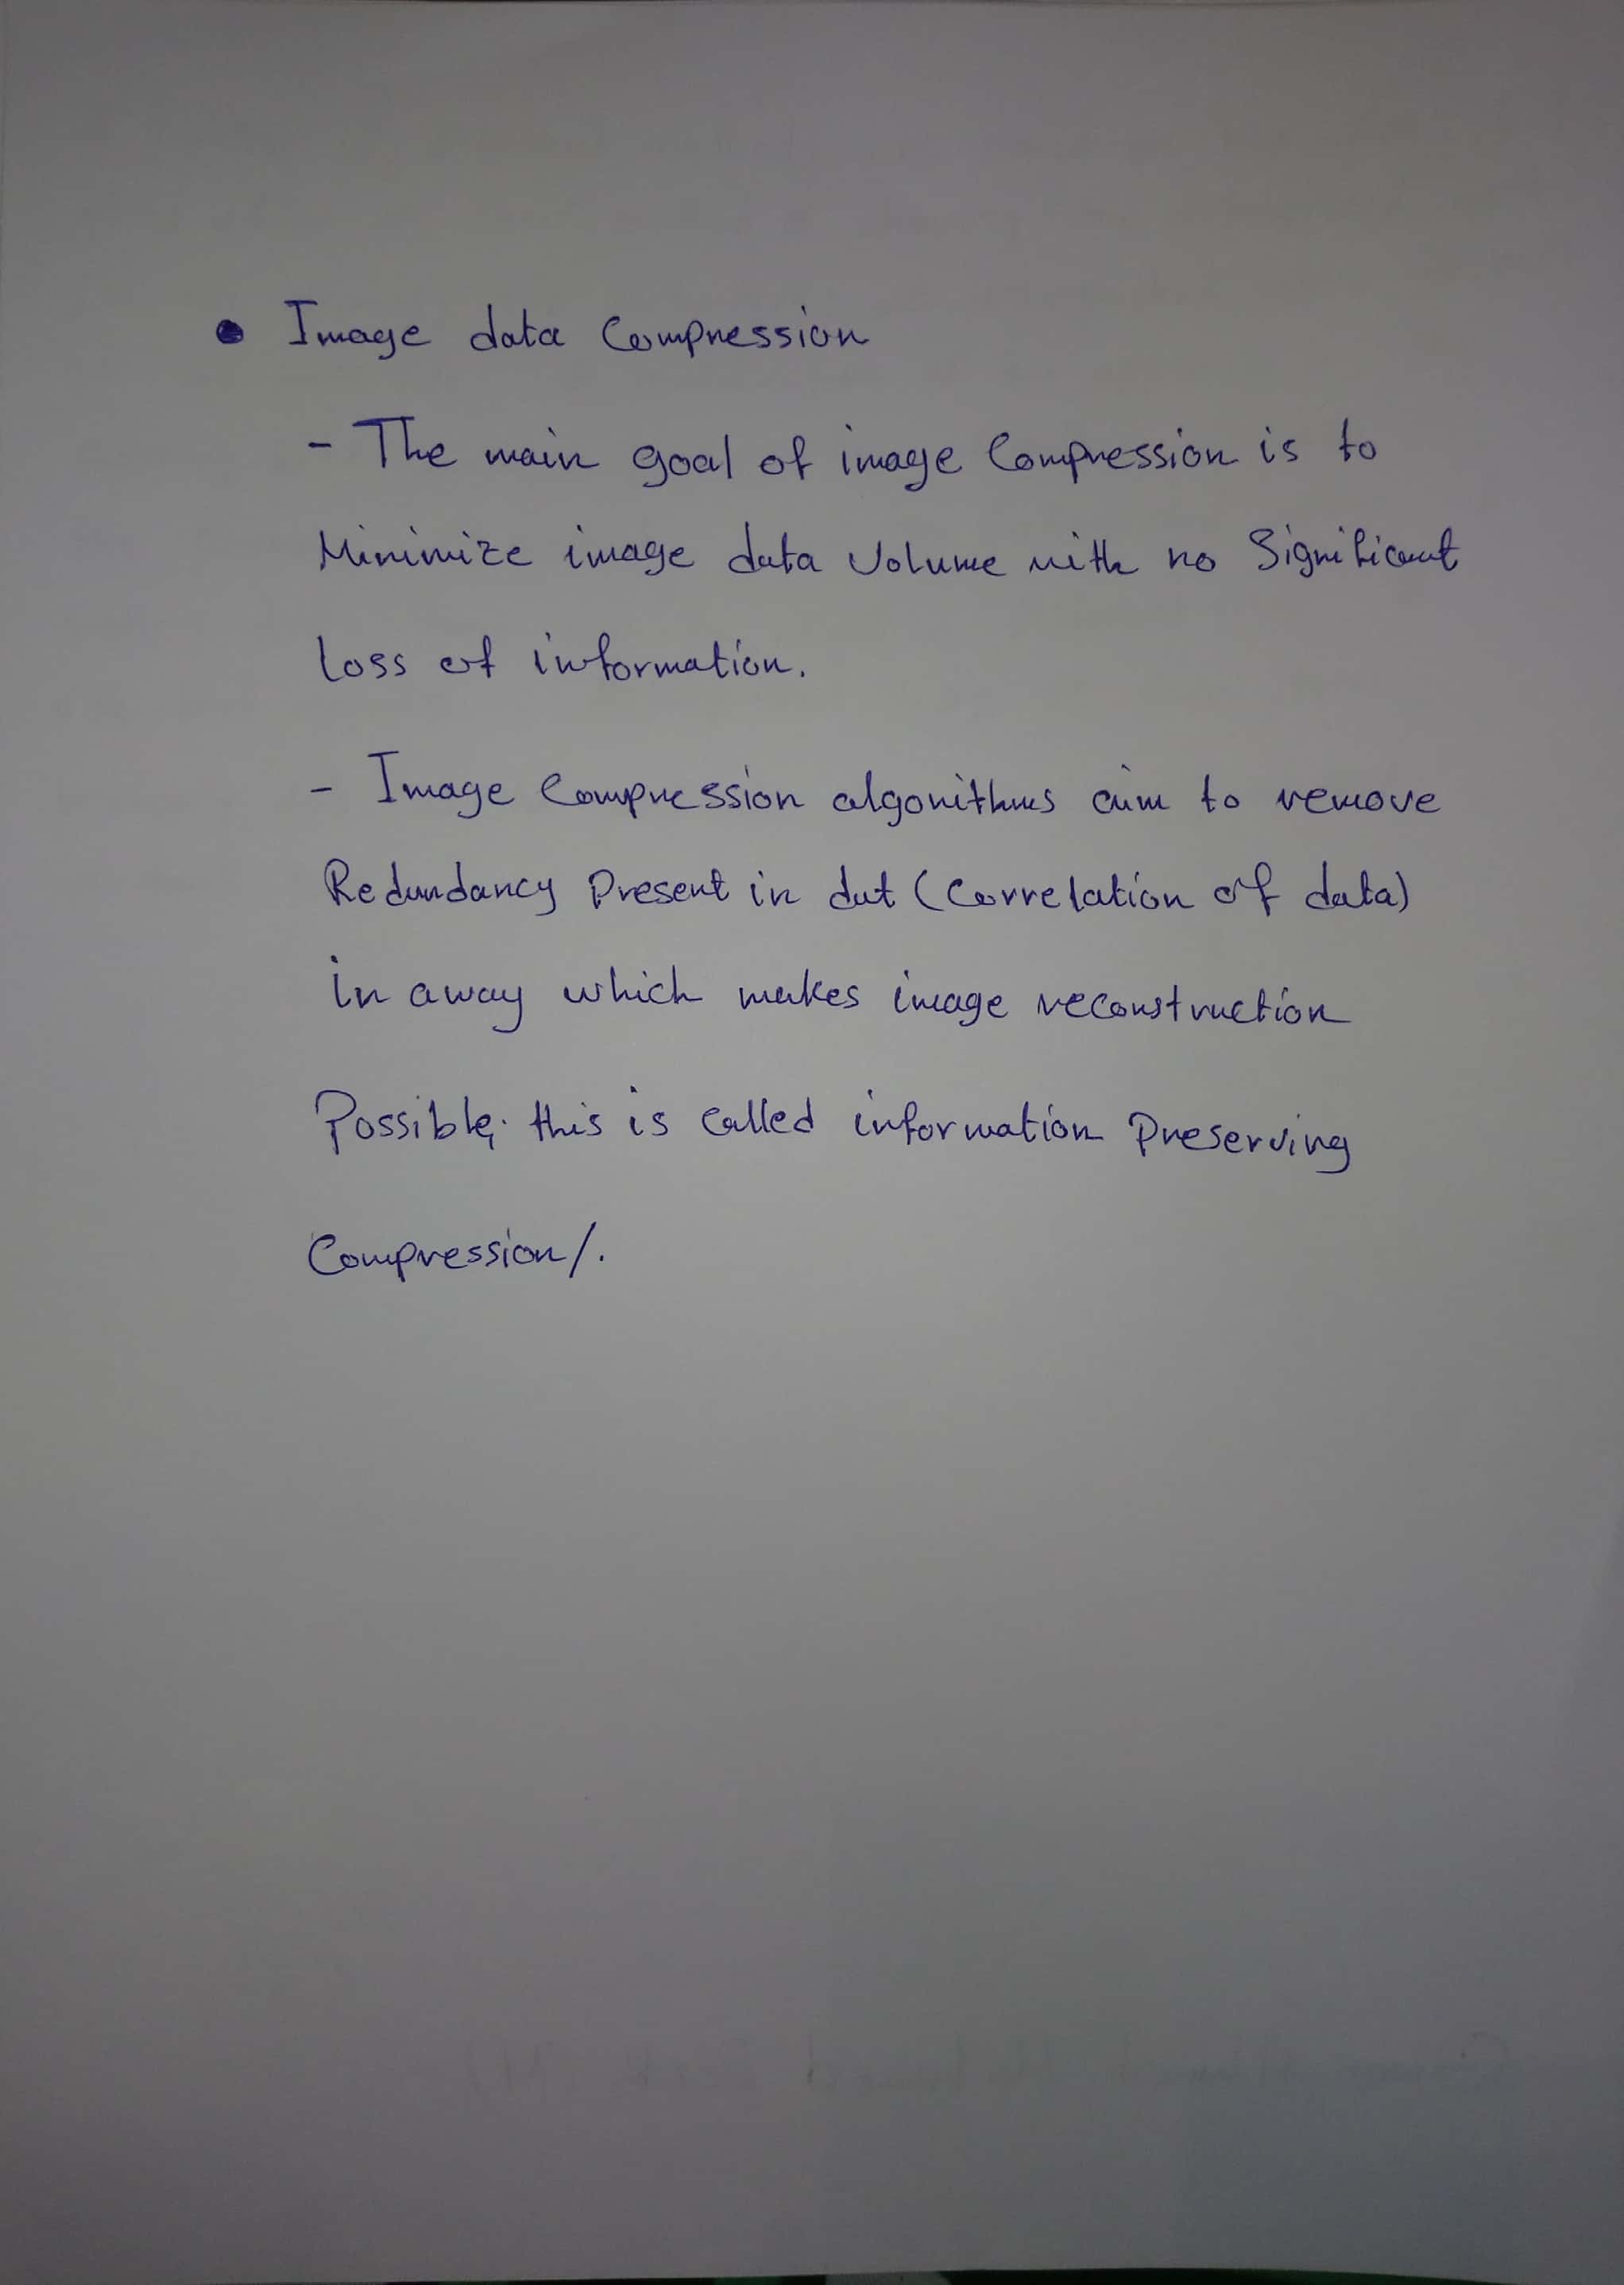 • Image data Compression
- The main goal of image Compression is to
Minimize image data Volume with no Significant
loss of information.
- Image Compression algorithms aim to remove
Redundancy Present in dat (Correlation of data)
in away which makes image reconstruction
Possible; this is Called information Preserving
Compression/.